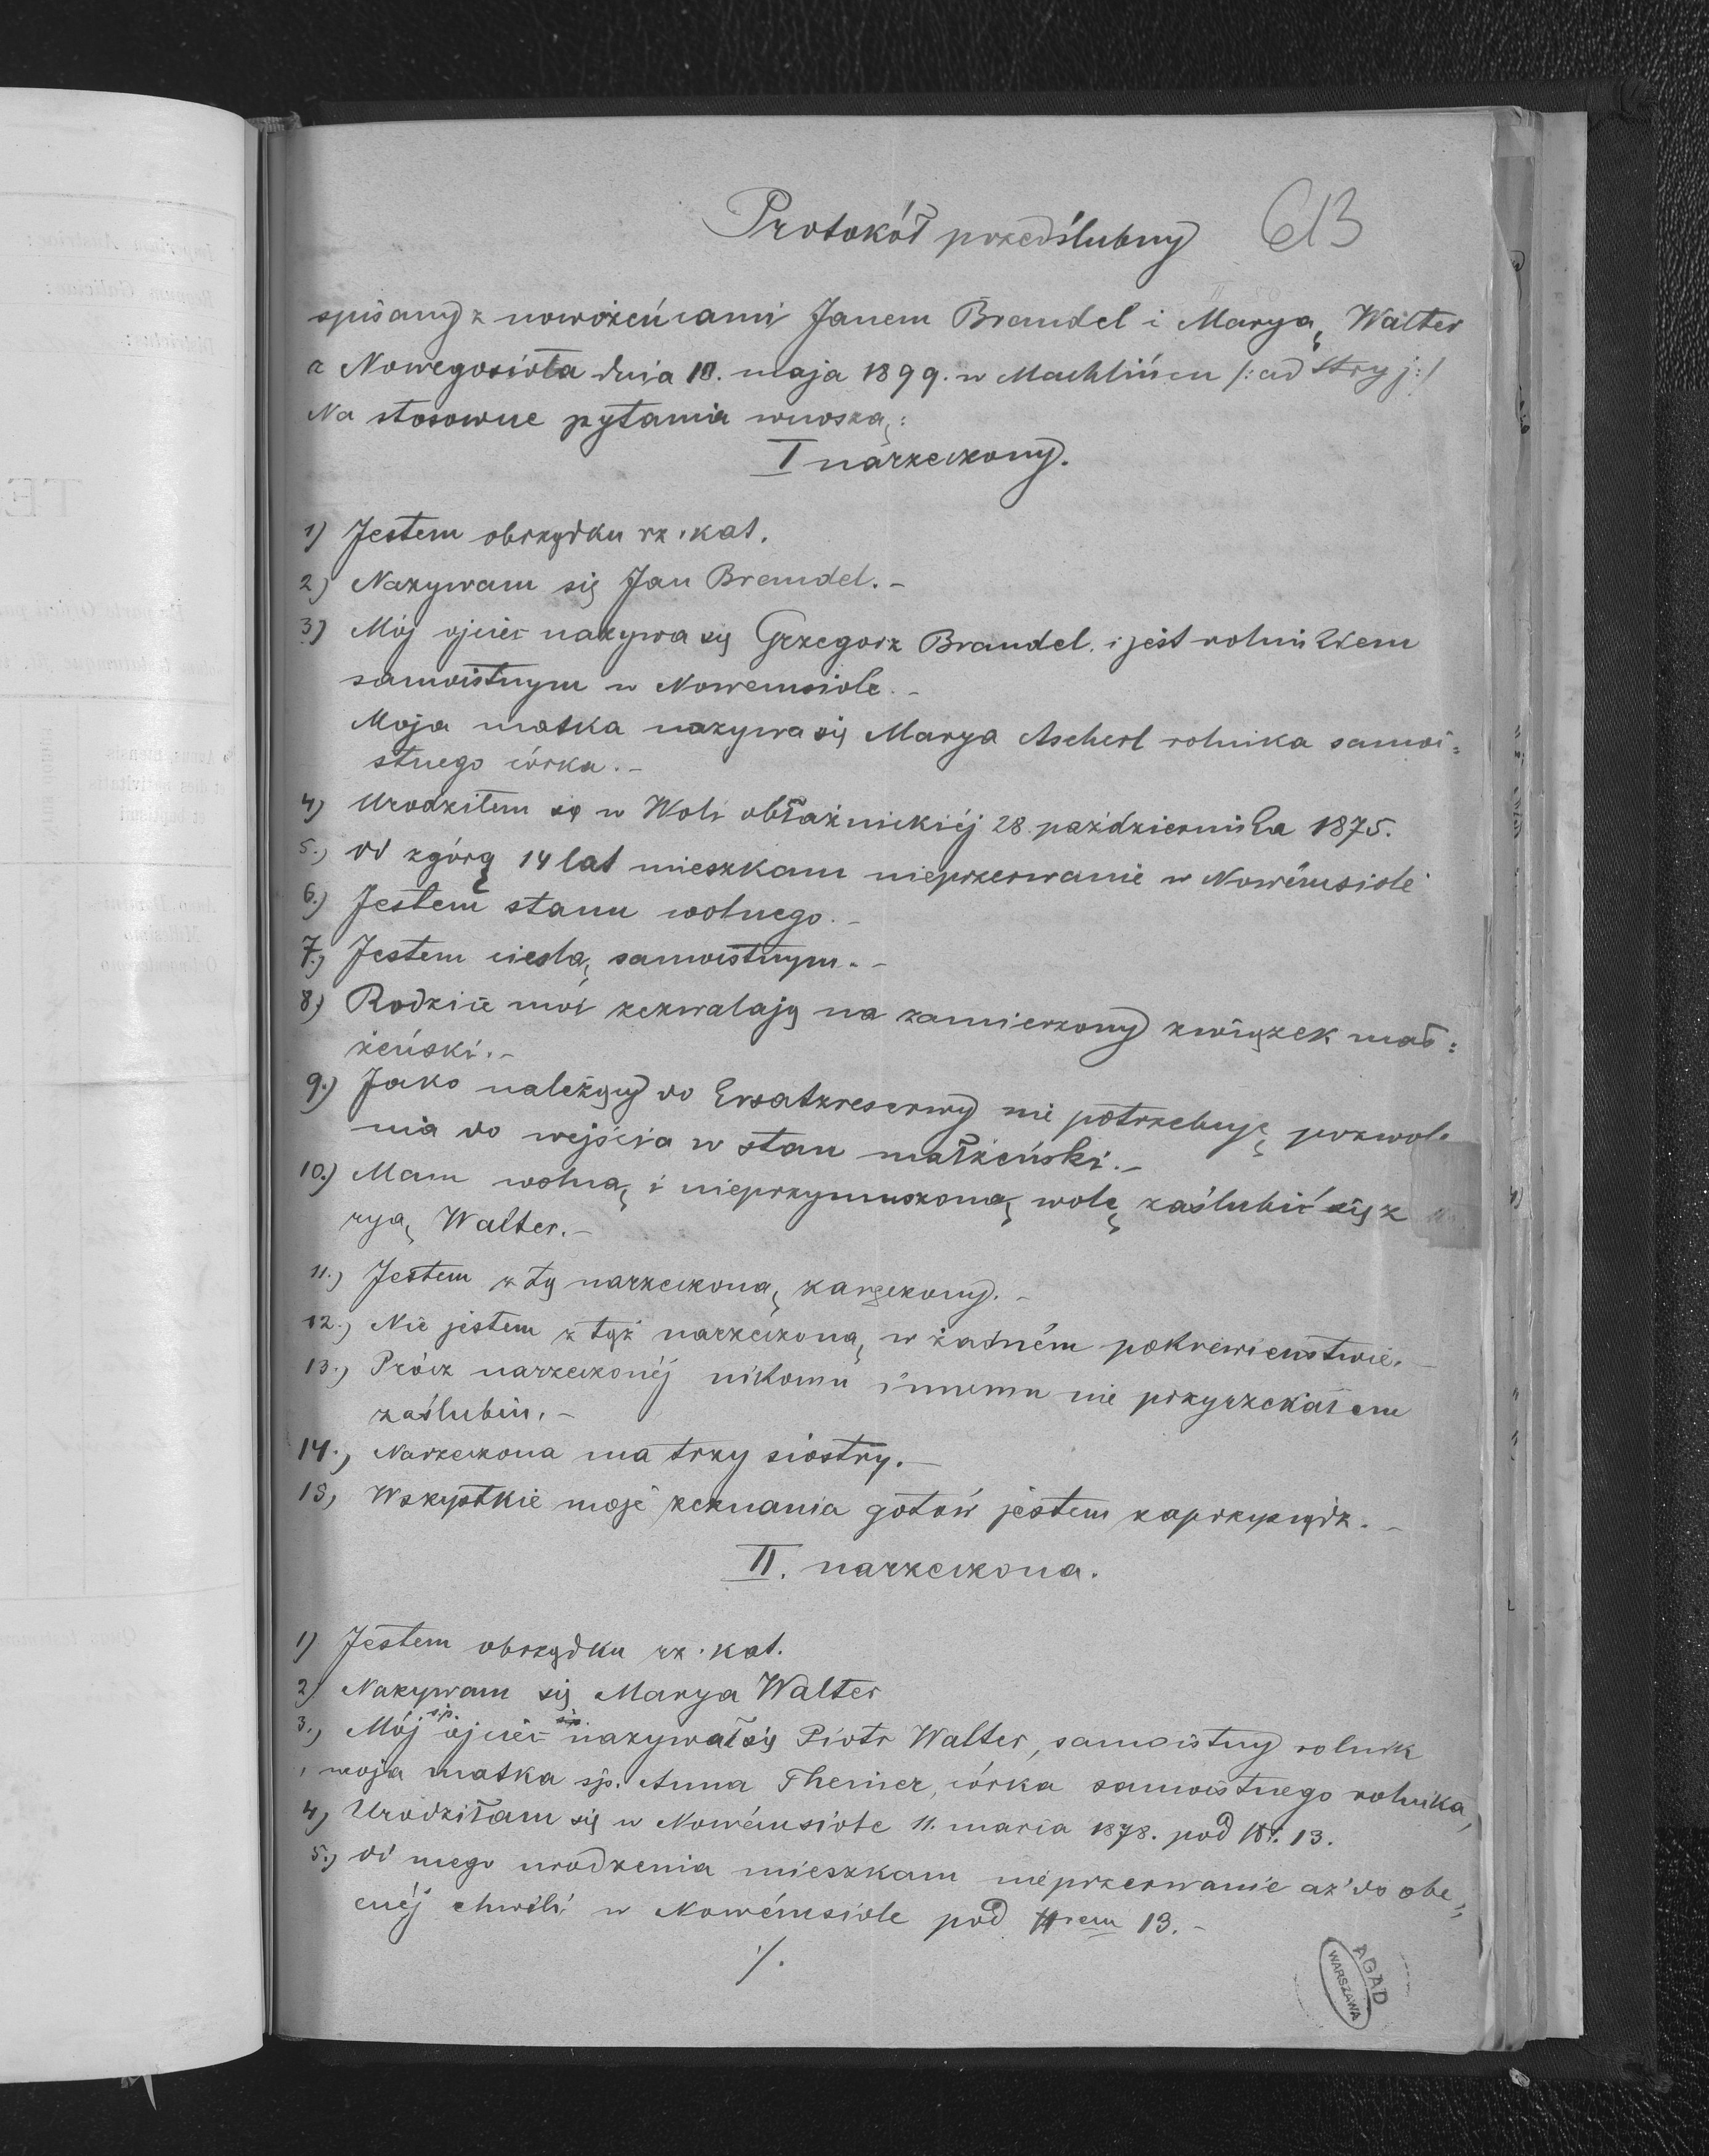 Protokół przedślubny 613
spisany z nowożeńcami Janem Brandel i Maryą Walter
z Nowegosioła dnia 18. maja 1899. w Machlińcu /: ad Stryj :/
Na stosowne pytania wnoszą:
I narzeczony.
1) Jestem obrządku rz. kat.
2) Nazywam się Jan Brandel. –
3) Mój ojciec nazywa się Grzegorz Brandel i jest rolnikiem
samoistnym w Nowemsiole. –
Moja matka nazywa się Marya Ascherl rolnika samoi=
stnego córka. –
4) Urodziłem się w Woli obłaźnickiéj 28. października 1875.
5.) od zgórą 14 lat mieszkam nieprzerwanie w Nowémsiole
6.) Jestem stanu wolnego. –
7.) Jestem cieslą samoistnym. –
8.) Rodzice moi zezwalają na zamierzony związek mał=
żeński. –
9.) Jako należący do Ersatzreserwy nie potrzebuję pozwole
nia do wejścia w stan małżeński. –
10.) Mam wolną i nieprzymuszoną wolę zaślubić się z
ryą Walter. –
11.) Jestem z tą narzeczoną zaręczony. –
12.) Nie jestem z tąż narzeczoną w żadném pokrewieństwie. –
13.) Prócz narzeczonéj nikomu innemu nie przyrzekałem
zaślubin. –
14.) Narzeczona ma trzy siostry. –
15) Wszystkie moje zeznania gotów jestem zaprzysiądz. –
II. narzeczona.
1) Jestem obrządku rz. kat.
2) Nazywam się Marya Walter
3.) Mój śp. ojciec nazywał się Piotr Walter, samoistny rolnik
, moja matka śp. Anna Theiner, córka samoistnego rolnika,
4) Urodziłam się w Nowémsiole 11. marca 1878. pod N. 13.
5.) od mego urodzenia mieszkam nieprzerwanie aż do obe„
cnéj chwili w Nowémsiole pod Nrem 13. –
./.
AGAD
WARSZAWA